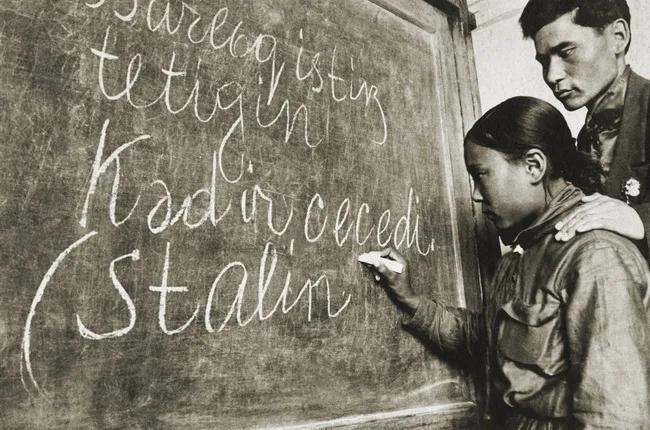 Barlьq istiꞑ
tetigin
Kadьr cecedi.
(Stalin